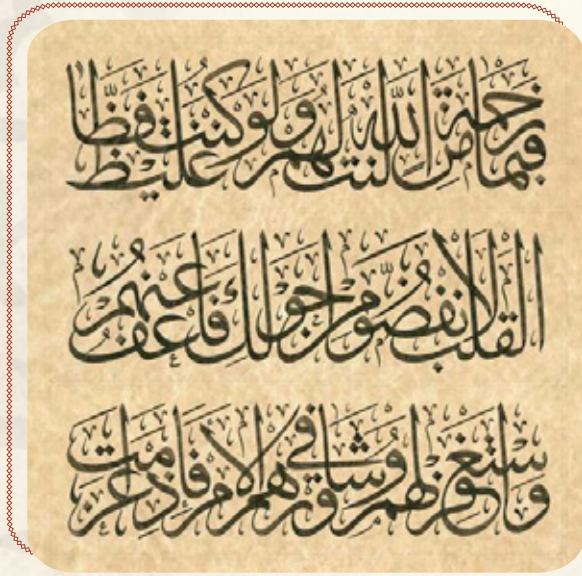 فبما رحمة من الله لنت لهم ولو كنت فظا غليظ
القلب لانفضوا من حولك فاعف عنهم
واستغفر لهم وشاورهم في الامر فاذا عزمت